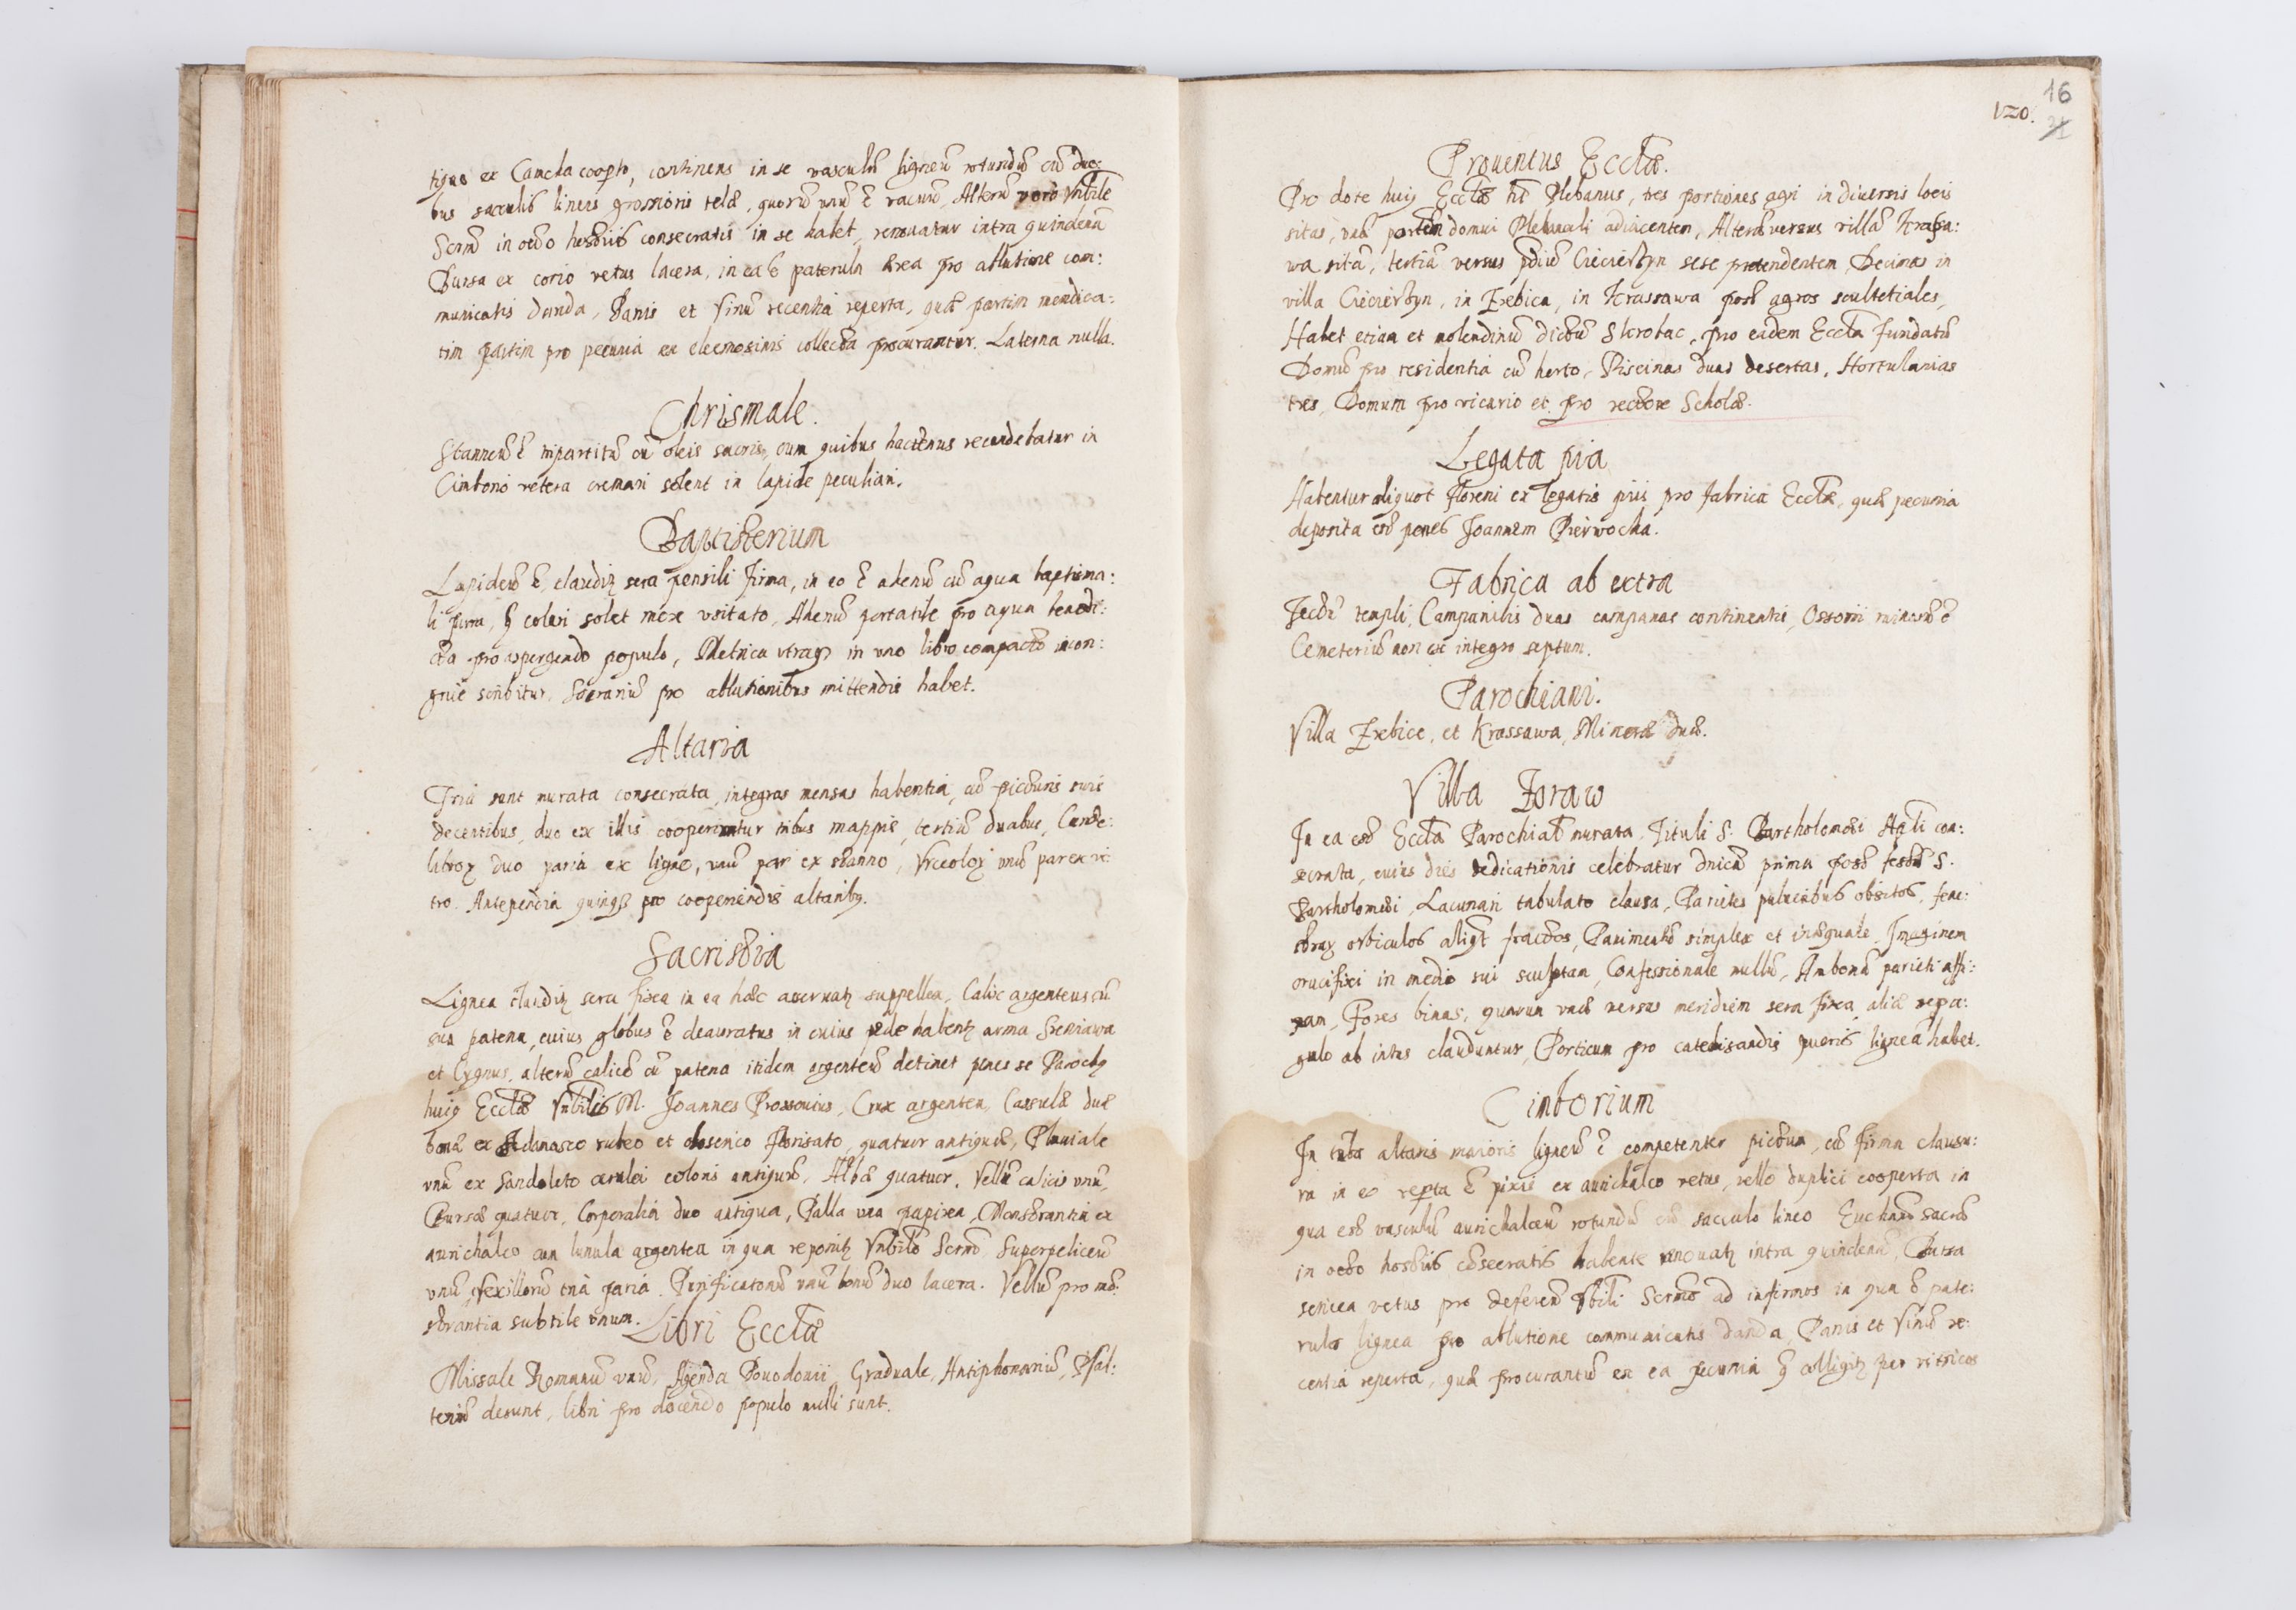 tiquo ex Camcha coopto, continens in se vasculũ ligneũ rotundũ cũ duo:
bus sacculis lineis grossioris telæ, quorũ unũ ẽ vacuũ, Alterũ vero Vnbile
Scrm̃ in octo hostiis consecratis in se habet, renovatur intra quindenã
Bursa ex corio vetus lacera, in ea ẽ paterula ærea pro ablutione com:
municatis danda, Panis et Vinũ recentia reperta, quæ partim mendica:
tim partim pro pecunia ex eleemosinis collecta procurantur. Laterna nulla.
Chrismale.
Stanneũ ẽ tripartitũ cũ oleis sacris, cum quibus hactenus recondebatur in
Cimborio vetera cremari solent in lapide peculiari.
Baptisterium
Lapideũ ẽ, claudit sera pensili firma, in eo ẽ ahenũ cũ aqua baptisma:
li pura, q̃ coleri solet more usitato, Ahenũ portatile pro aqua benedi:
cta pro aspergendo populo, Metrica utraq3 in uno libro compacto incon:
grue scribitur, Sacrariũ pro ablutionibus mittendis habet.
Altaria
Tria sunt murata consecrata, integras mensas habentia, cũ picturis suis
decentibus, duo ex illis cooperiuntur tribus mappis, tertiũ duabus, Cande:
labroꝝ duo paria ex ligno, unũ par ex stanno, Vrceoloꝝ unũ par ex vi
tro. Antependia quinq3 pro cooperiendis altarib9.
Sacristia
Lignea claudit sera fixa in ea hæc acervat suppellex, Calix argenteus cũ
sua patena, cuius globus ẽ deauratus in cuius pede habent arma Sreniawa
et Cygnus, alterũ calicẽ cũ patena itidem argenteũ detinet penes se Paroch9
hui9 Ecclæ Vnbilis M. Joannes Prossovius, Crux argentea, Casulæ duæ
bonæ ex Adamasco rubeo et olosenico florisato, quatuor antiquæ, Pluviale
unũ ex Sandoleto cærulei coloris antiquũ, Albæ quatuor, Vellũ calicis unũ,
Bursæ quatuor, Corporalia duo antiqua, Palla una papirea, Monstrantia ex
aurichalco cum lunula argentea in qua reponit Vnbile Scrm̃ Superpeliceũ
unũ, Vexillorũ tria paria. Purificatoriũ unũ bonũ duo lacera. Vellũ pro mõ:
strantia subtile unum.
Libri Ecclæ
Missale Romanũ unũ, Agenda Povodovii, Graduale, Antiphonariũ, Psal:
teriũ desunt, libri pro docendo populo nulli sunt.
120.
16
21
Proventus Ecclæ.
Pro dote hui9 Ecclæ ht Plebanus, tres portiones agri in diversis locis
sitas, unã partem domui Plebanali adiacentem, Alterã versus villã Krassa:
wa sitã, tertiã versus pdiũ Ciecierßyn sese protendentem, Decimas in
villa Ciecierßyn, in Trebica, in Krassawa post agros scultetiales,
Habet etiam et molendinũ dictũ Skrobac, pro eadem Eccla fundatũ
Domũ pro residentia cũ horto, Piscinas duas desertas, Hortullanias
tres, Domum pro vicario et pro rectore Scholæ.
Legata pia
Habentur aliquot floreni ex legatis piis pro fabrica Ecclæ, quæ pecunia
deposita est penes Joannem Pierwocha.
Fabrica ab extra
Tectũ templi, Campanilis duas campanas continentis, Ossorii ruinosũ ẽ
Cemeteriũ non est integro septum.
Parochiani.
Villa Trebice, et Krassawa, Mineræ duæ.
Villa Zoraw
In ea est Eccla Parochialis murata. Tituli S. Bartholomæi Apli con:
secrata, cuius dies dedicationis celebratur dnica prima post festũ S.
Bartholomæi, Lacunari tabulato clausa, Parietes pulveribus obsitos, fene:
straꝝ orbiculos aliqt fractos, Pavimentũ simplex et inæquale, Imaginem
crucifixi in medio sui sculptam, Confessionale nullũ, Ambonã parieti affi:
xam, Fores binas, quarum unæ versus meridiem sera fixa, aliæ repa:
gulo ab intus clauduntur, Porticum pro catechisandis pueris ligneã habet.
Cimborium
In altaris maioris ligneũ ẽ competenter pictum, cũ firma clausu:
ra in eo repta ẽ pixis ex aurichalco vetus, vello duplici cooperta in
qua est vasculũ aurichalceũ rotundũ cũ sacculo lineo Euchar Sacrũ
in octo hostiis cõsecratis habente renovat intra quindenã, Bursa
sericea vetus pro deferen Vbili Scrmo ad infirmos in qua ẽ pate:
rula lignea pro ablutione communicatis danda, Panis et Vinũ re:
centia reperta, quæ procurantũ ex ea pecunia q̃ colligit per vitricos